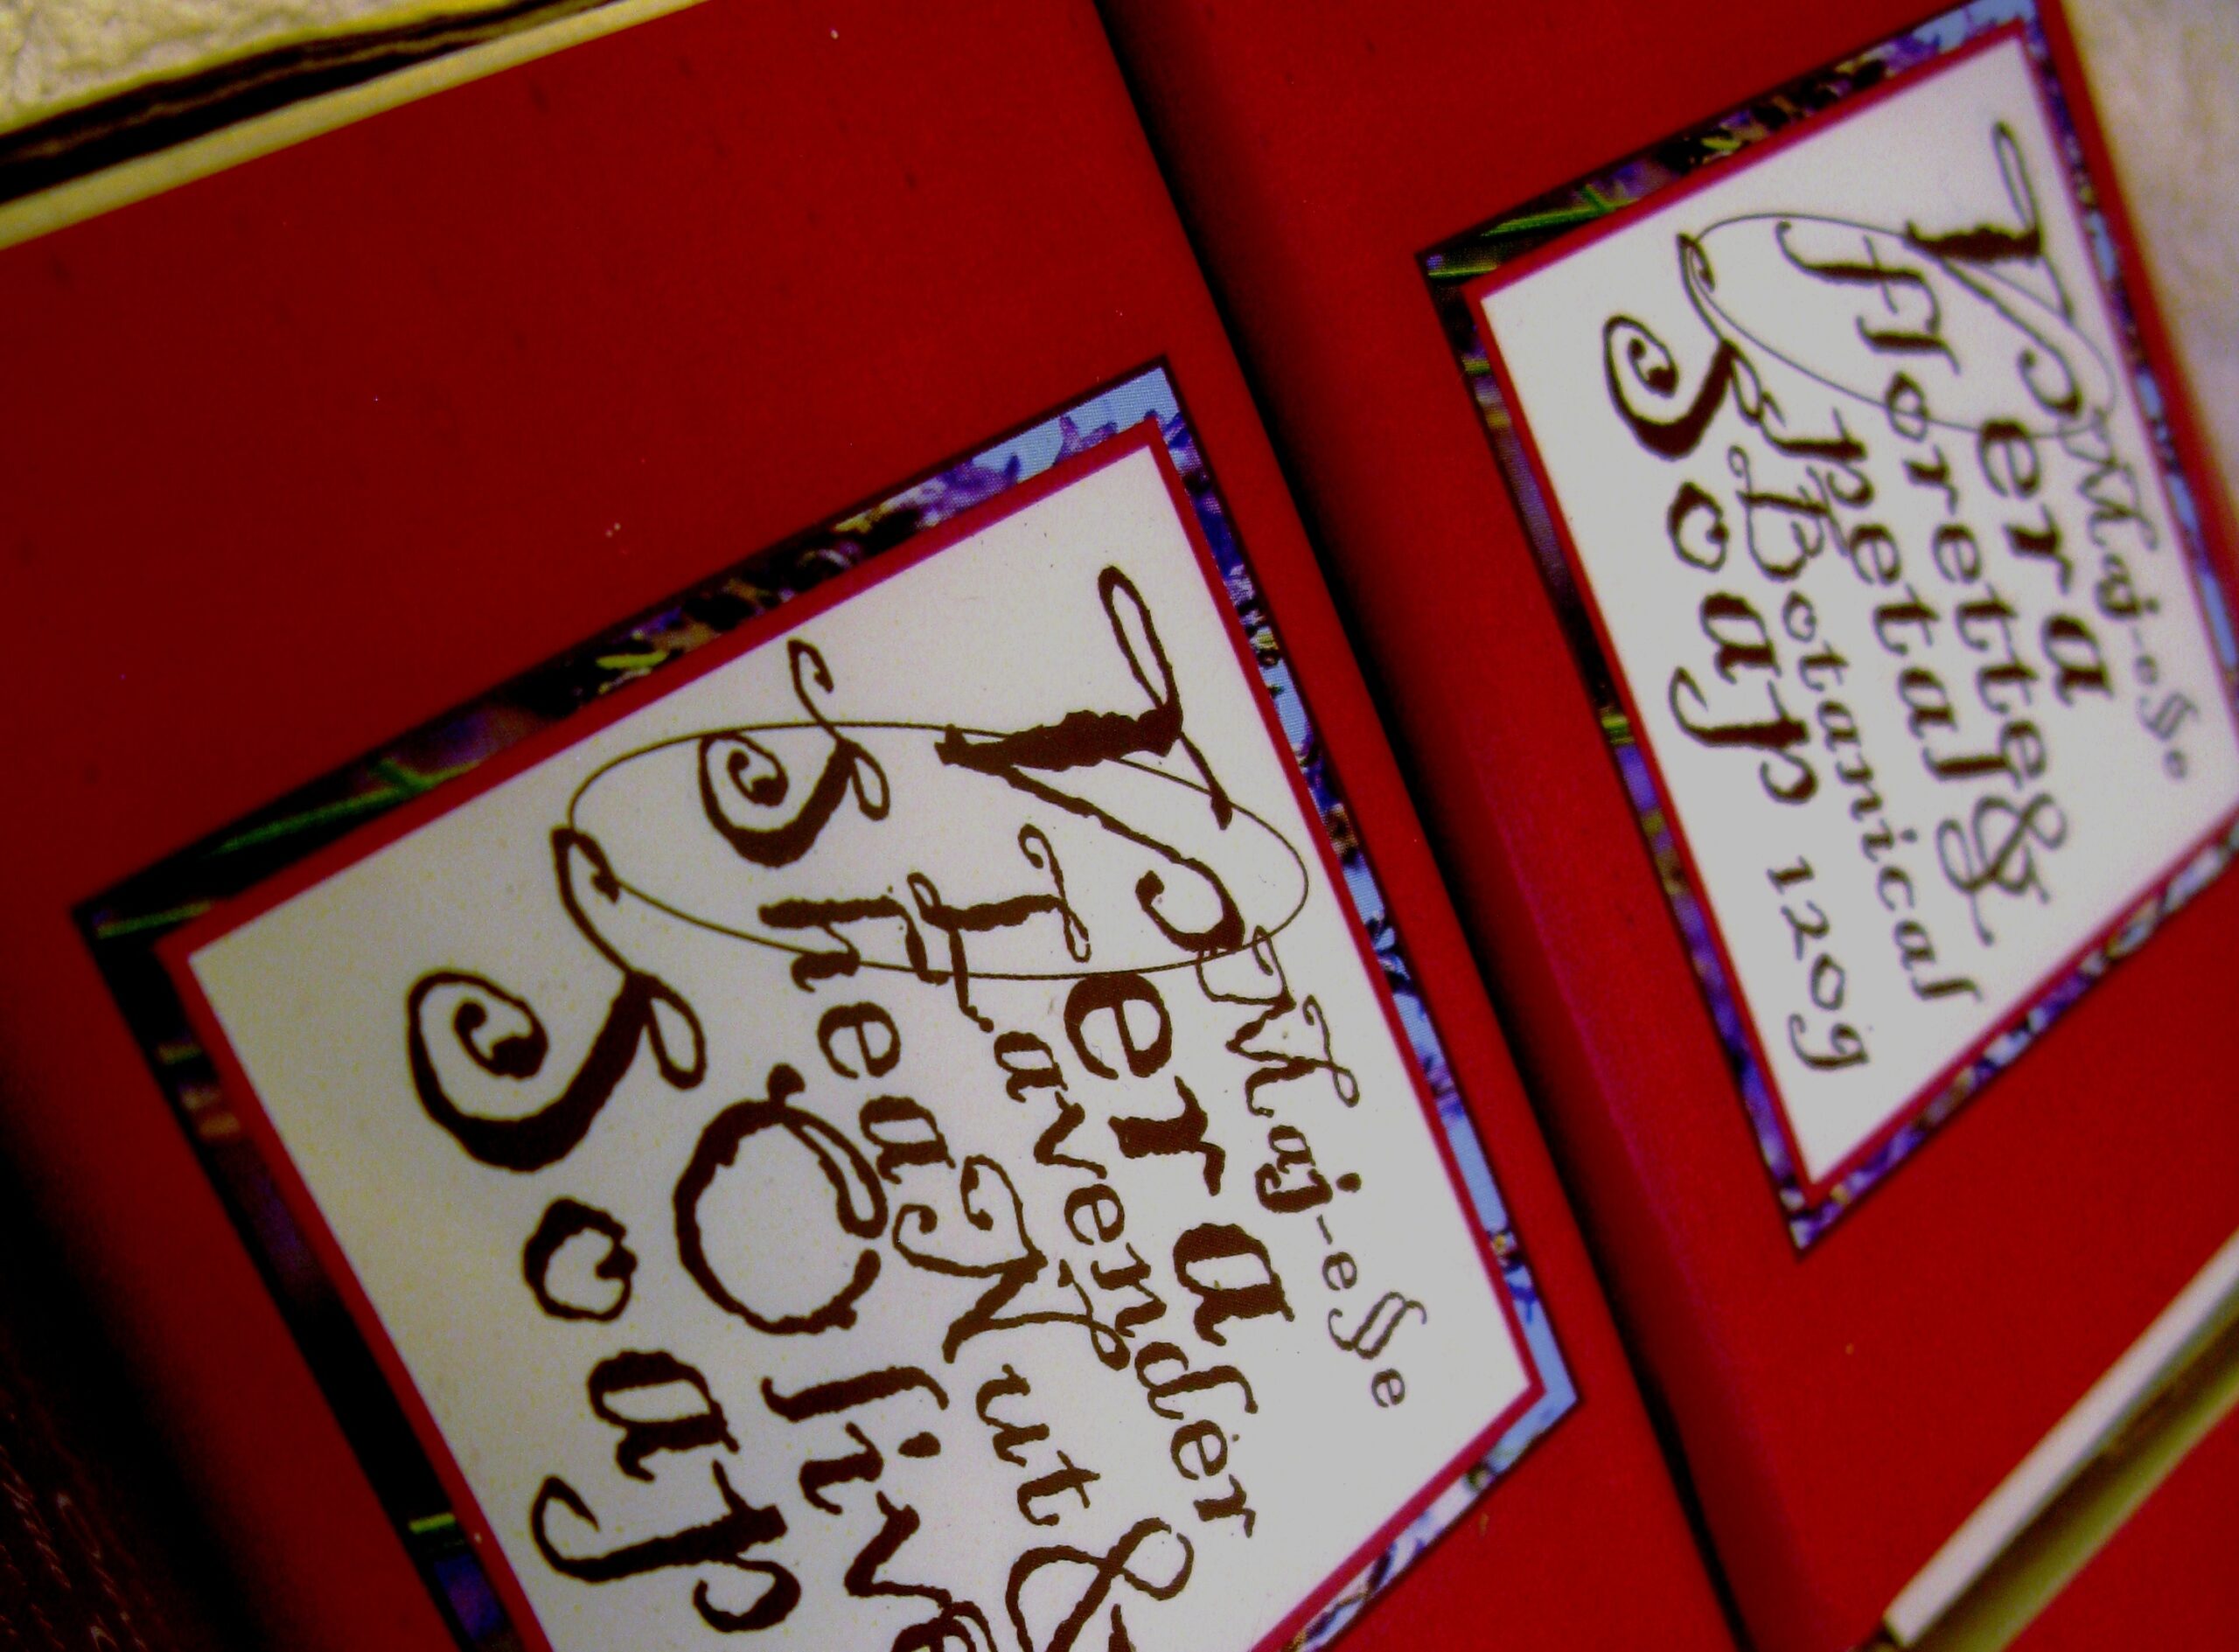 Maj-esse
Vera
Lavender
Shea Nut &
Olive
Soap
Maj-esse
Vera
florette &
petal
Botanical
Soap 120g